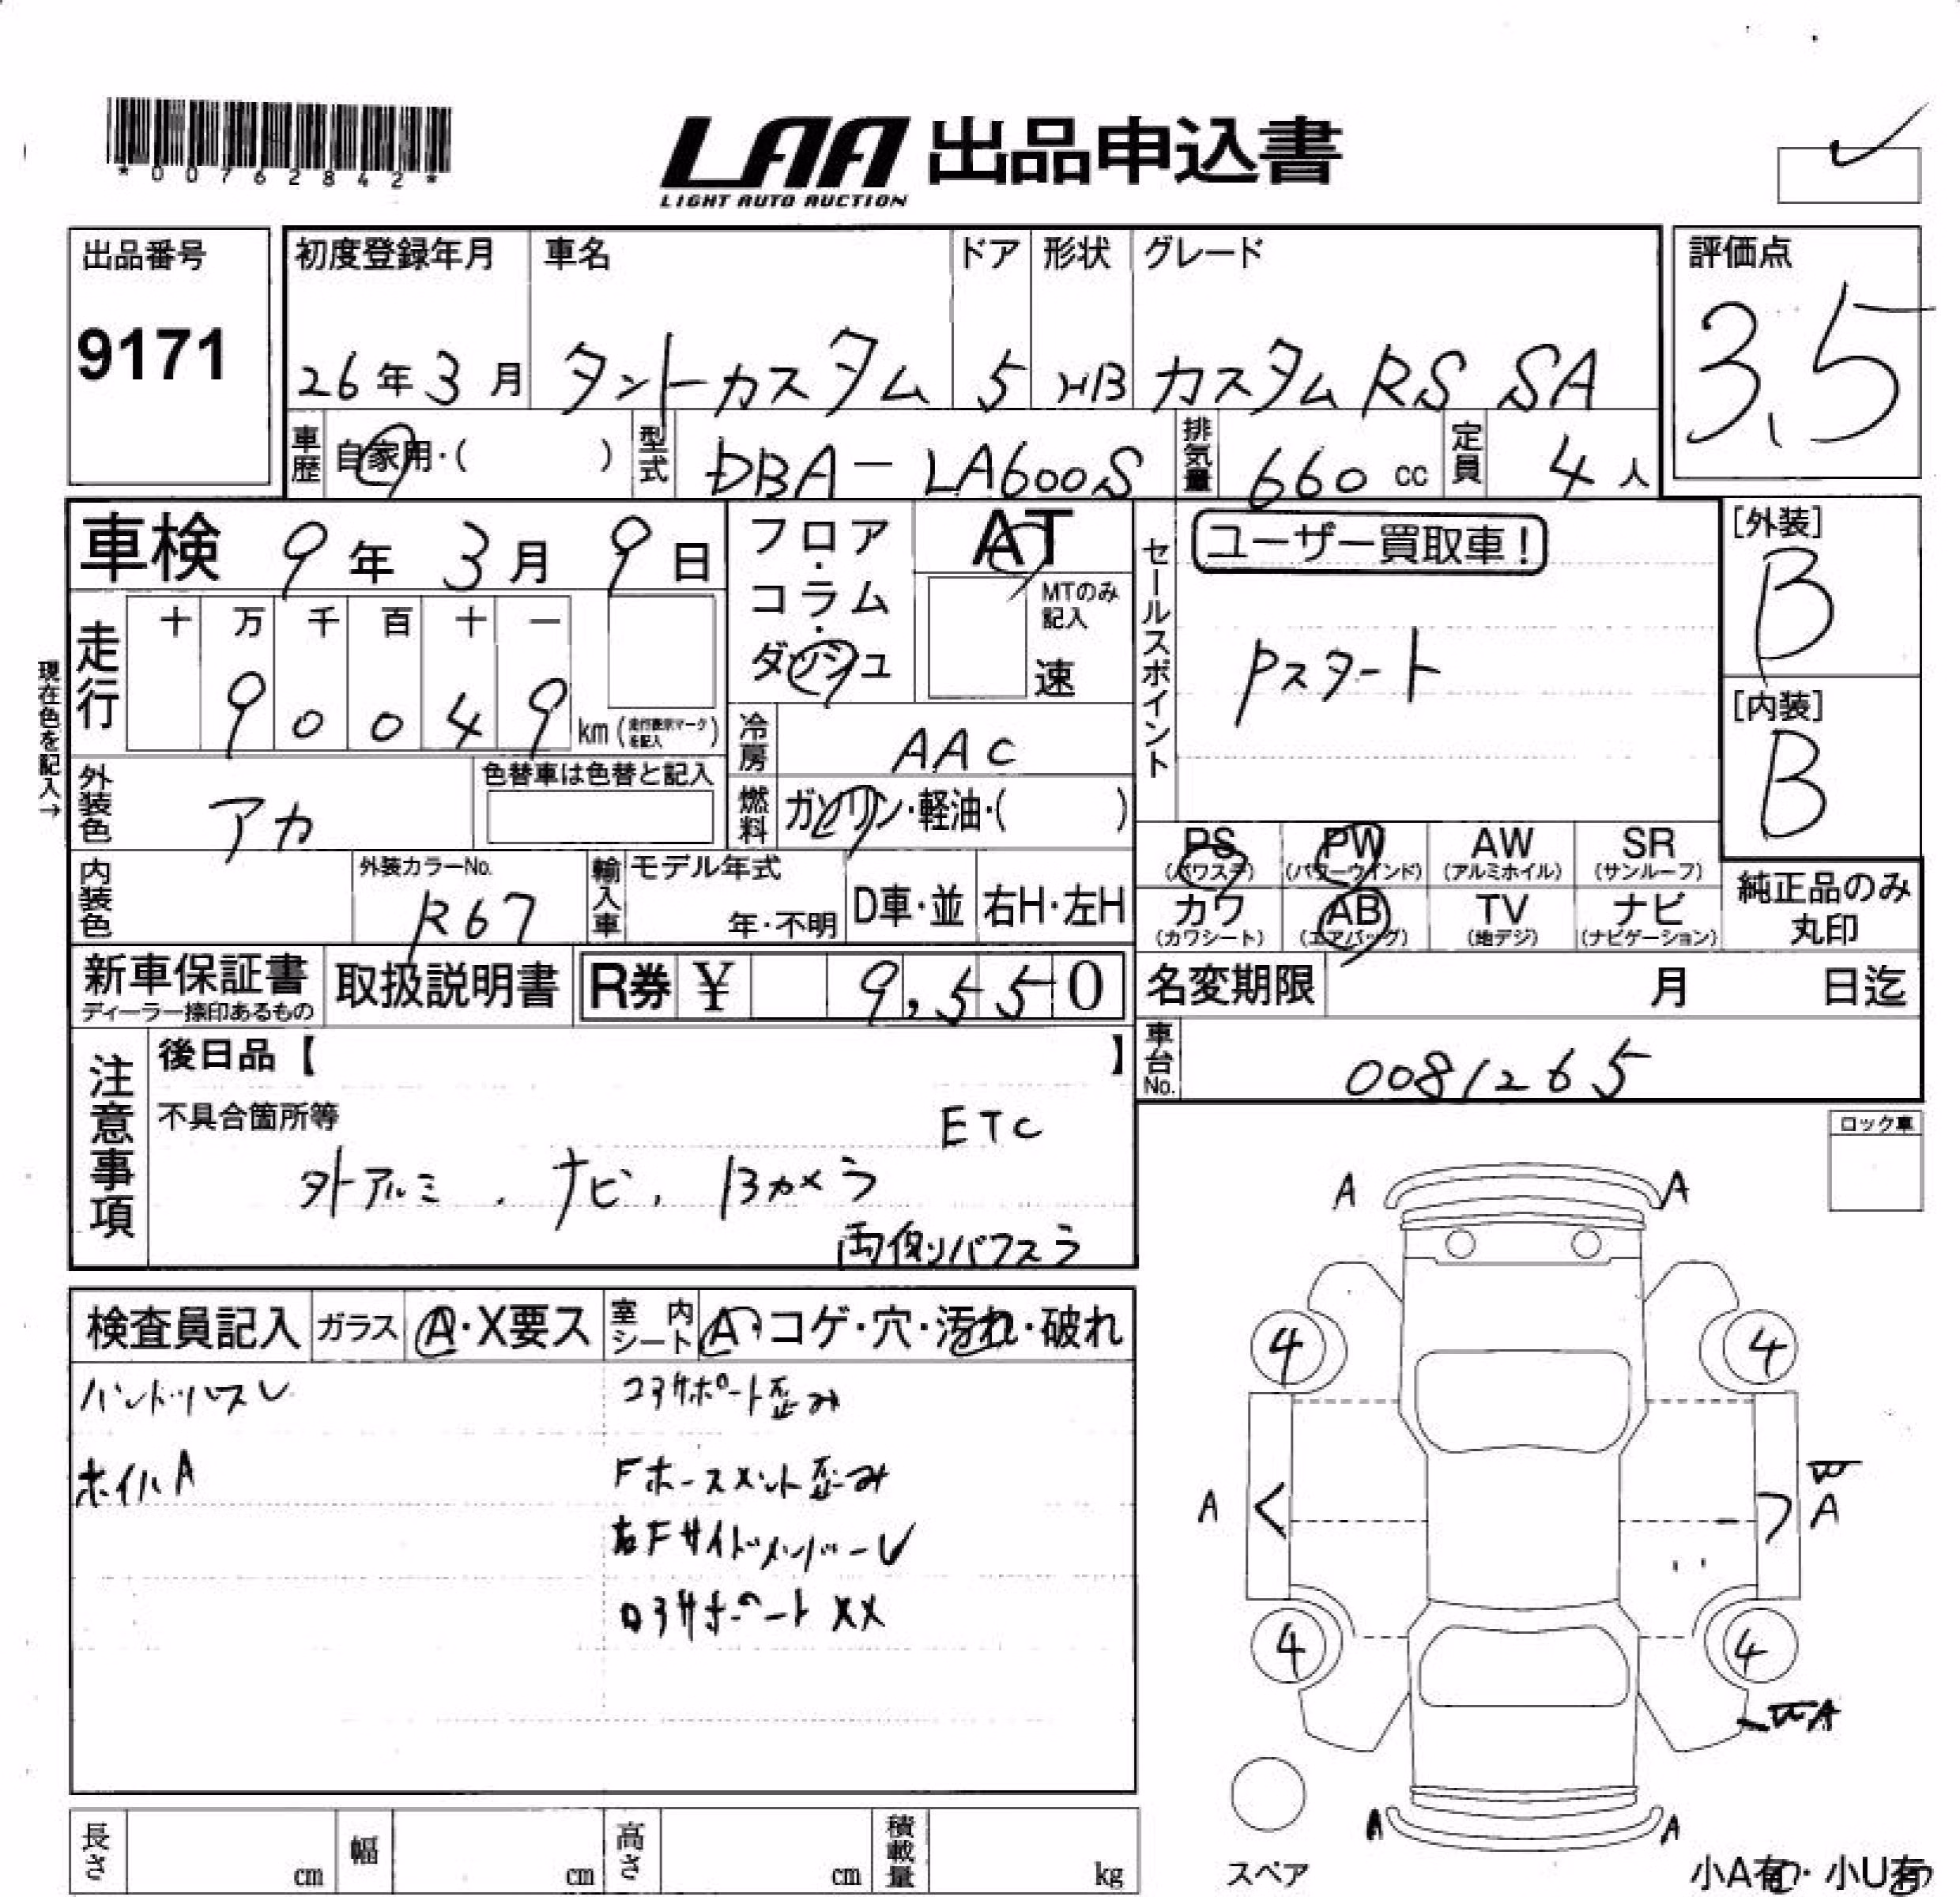 *00762842*
LAA 出品申込書
LIGHT AUTO AUCTION
出品番号
9171
初度登録年月
26年3月
車名
タントカスタム
ドア
5
形状
HB
グレード
カスタムRS SA
評価点
3.5
車歴
自家用・( )
型式
DBA-LA600S
排気量
660 cc
定員
4人
車検 9年3月9日
フロア・コラム・ダッシュ
AT
MTのみ記入
速
セールスポイント
ユーザー買取車!
Pスタート
[外装]
B
[内装]
B
現在色を記入→
走行
十 万 千 百 十 一
9 0 0 4 9 km (走行表示マークを記入)
冷房
AAC
外装色
アカ
色替車は色替と記入
燃料
ガソリン・軽油・( )
内装色
外装カラーNo.
R67
輸入車
モデル年式
年・不明
D車・並
右H・左H
PS
(パワステ)
PW
(パワーウインド)
AW
(アルミホイル)
SR
(サンルーフ)
カワ
(カワシート)
AB
(エアバッグ)
TV
(地デジ)
ナビ
(ナビゲーション)
純正品のみ
丸印
新車保証書
ディーラー捺印あるもの
取扱説明書
R券 ¥ 9,550
名変期限 月 日迄
車台No.
0081265
注意事項
後日品【 】
不具合箇所等
ETC
外アルミ、ナビ、Bカメラ
両側パワスラ
ロック車
検査員記入
ガラス
A・X要ス
室内シート
A・コゲ・穴・汚れ・破れ
ハンドハズレ
コアサポート歪み
ホイルA
Fホースメント歪み
右FサイドメンバーU
ロアサポートXX
A A
4 4
A W
A
4 4
WA
A A
スペア
小A有・小U有
長さ cm
幅 cm
高さ cm
積載量 kg